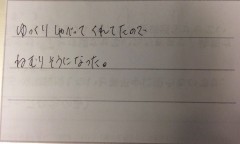 ゆっくりしゃべってくれてたので
ねむりそうになった。